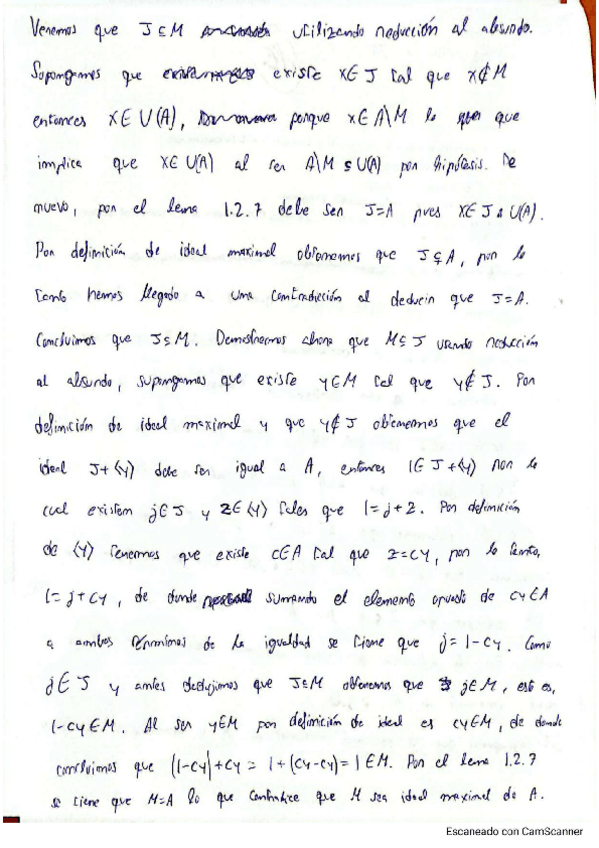 Veremos que J⊆M utilizando reducción al absurdo.
Supongamos que existe x∈J tal que x∉M
entonces x∈U(A), porque x∈A\M lo que
implica que x∈U(A) al ser A\M ⊆ U(A) por hipótesis. De
nuevo, por el lema 1.2.7 debe ser J=A pues x∈J∩U(A).
Por definición de ideal maximal obtenemos que J⊊A, por lo
tanto hemos llegado a una contradicción al deducir que J=A.
Concluimos que J⊆M. Demostremos ahora que M⊆J usando reducción
al absurdo, supongamos que existe y∈M tal que y∉J. Por
definición de ideal maximal y que y∉J obtenemos que el
ideal J+⟨y⟩ debe ser igual a A, entonces 1∈J+⟨y⟩ por lo
cual existen j∈J y z∈⟨y⟩ tales que 1=j+z. Por definición
de ⟨y⟩ tenemos que existe c∈A tal que z=cy, por lo tanto,
1=j+cy, de donde sumando el elemento opuesto de cy∈A
a ambos términos de la igualdad se tiene que j=1-cy. Como
j∈J y antes dedujimos que J⊆M obtenemos que j∈M, esto es,
1-cy∈M. Al ser y∈M por definición de ideal es cy∈M, de donde
concluimos que (1-cy)+cy = 1+(cy-cy)=1∈M. Por el lema 1.2.7
se tiene que M=A lo que contradice que M sea ideal maximal de A.
Escaneado con CamScanner